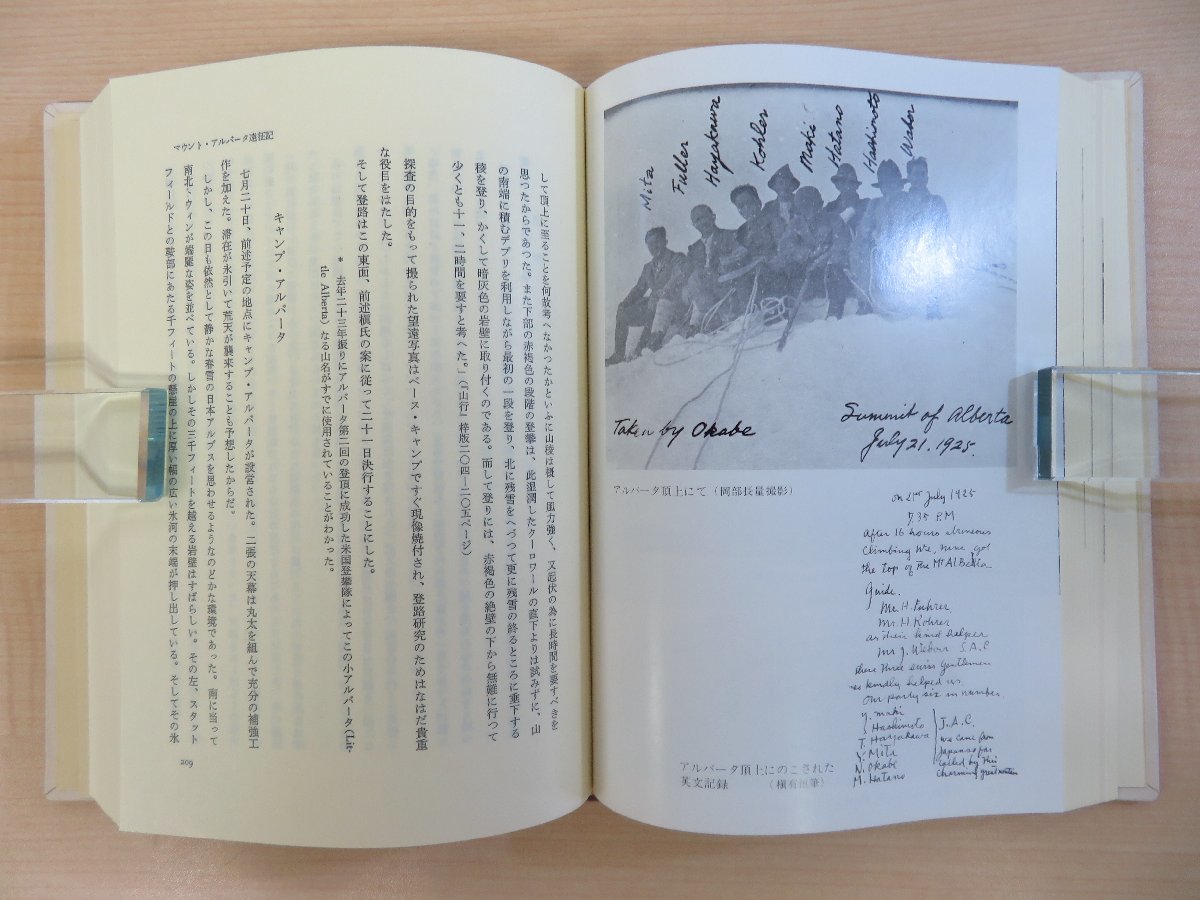 マウント・アルバータ遠征記
して頂上に至ることを何故考へなかつたかといふに山稜は概して風力強く、又起伏の為に長時間を要すべきを
思つたからであつた。また下部の赤褐色の段階の登攀は、此湿潤したクーロワールの直下よりは試みずに、山
の南端に積むデブリを利用しながら最初の一段を登り、北に残雪をへづつて更に残雪の終るところに垂下する
稜を登り、かくして暗灰色の岩壁に取り付くのである。而して登りには、赤褐色の絶壁の下から無難に行つて
少くとも十一、二時間を要すと考へた。」(『山行』梓版二〇四―二〇五ページ)
探査の目的をもって撮られた望遠写真はベース・キャンプですぐ現像焼付され、登路研究のためはなはだ貴重
な役目をはたした。
そして登路はこの東面、前述槇氏の案に従って二十一日決行することにした。
* 去年二十三年振りにアルバータ第二回の登頂に成功した米国登攀隊によってこの小アルバータ(Lit-
tle Alberta)なる山名がすでに使用されていることがわかった。
キャンプ・アルバータ
七月二十日、前述予定の地点にキャンプ・アルバータが設営された。二張の天幕は丸太を組んで充分の補強工
作を加えた。滞在が永引いて荒天が襲来することも予想したからだ。
しかし、この日も依然として静かな春雪の日本アルプスを思わせるようなのどかな環境であった。南に当って
南北、ウィンが端麗な姿を並べている。しかしその三千フィートを越える岩壁はすばらしい。その左、スタット
フィールドとの鞍部にあたる千フィートの懸崖の上に厚い幅の広い氷河の末端が押し出している。そしてその氷
209
Mita
Fuller
Hayakawa
Kohler
Maki
Hatano
Hashimoto
Weber
Taken by Okabe
Summit of Alberta
July 21. 1925.
アルバータ頂上にて(岡部長量撮影)
on 21st July 1925
7.35 P.M
After 16 hours strenuous
climbing we, nine got
the top of the Mt Alberta
Guide.
Mr. H. Fuhrer
Mr. H. Kohrer
as their kind helper
Mr J. Weber S.A.C
these three swiss gentlemen
kindly helped us.
Our party six in number.
Y. Maki
S. Hashimoto
T. Hayakawa
Y. Mita
N. Okabe
M. Hatano
J.A.C.
we came from
Japan so far
called by this
charming great
アルバータ頂上にのこされた
英文記録 (槇有恒筆)